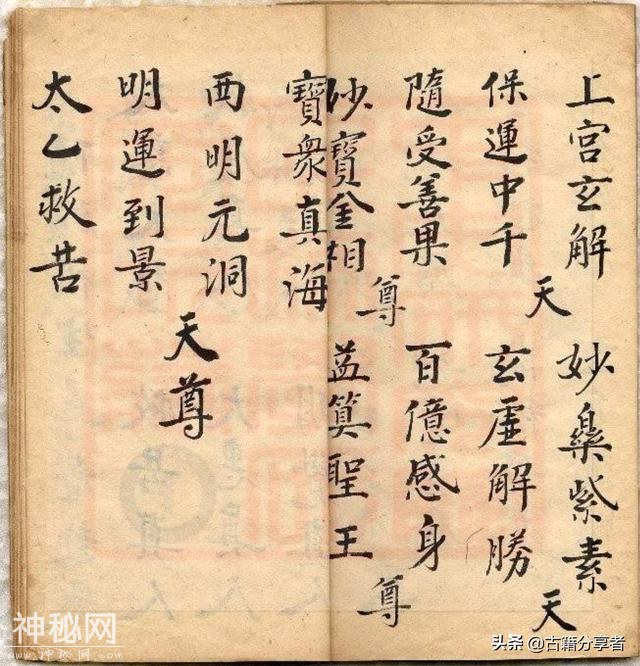 上宮玄解
保運中千
隨受善果
寶金相
天尊
妙紫素
玄虛解勝
百億感身
益算聖王
天尊
寶衆真海
西明元洞
明運到景
太乙救苦
天尊
神秘网
www.shenmiwang.com
头条 @古籍分享者